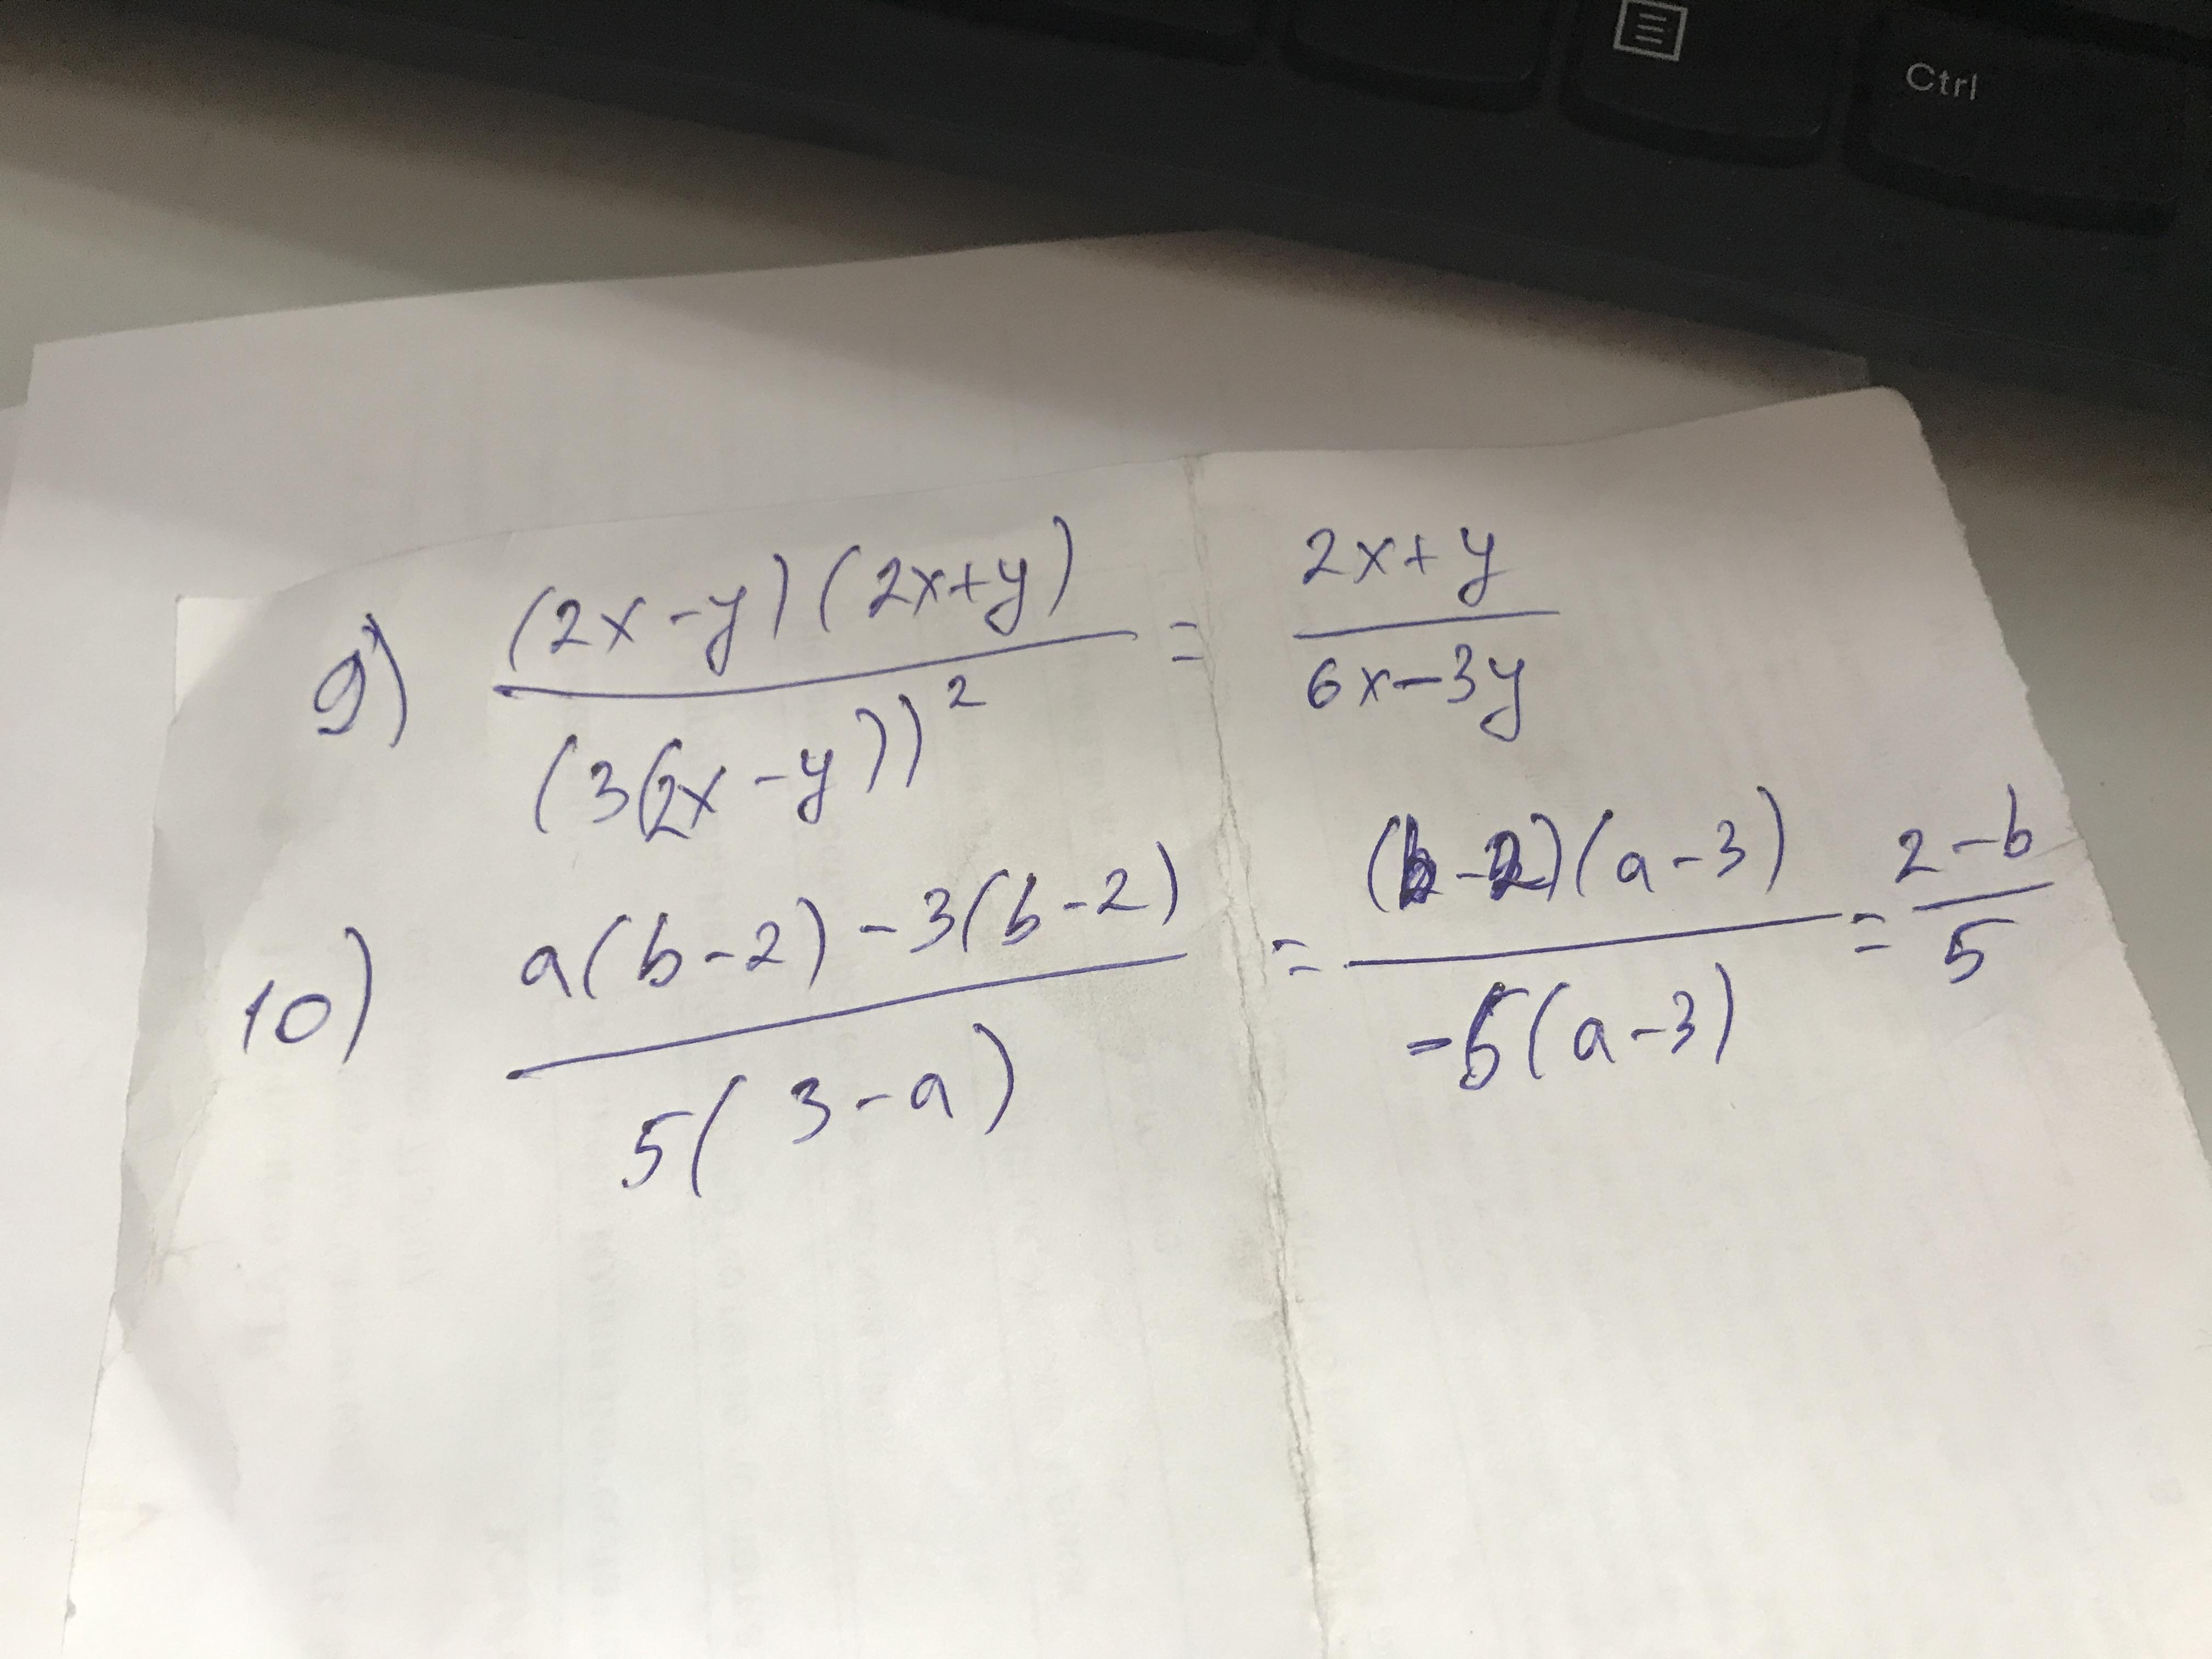 Ctrl
9) (2x-y)(2x+y) / (3(2x-y))² = 2x+y / 6x-3y
10) a(b-2)-3(b-2) / 5(3-a) = (b-2)(a-3) / -5(a-3) = 2-b / 5